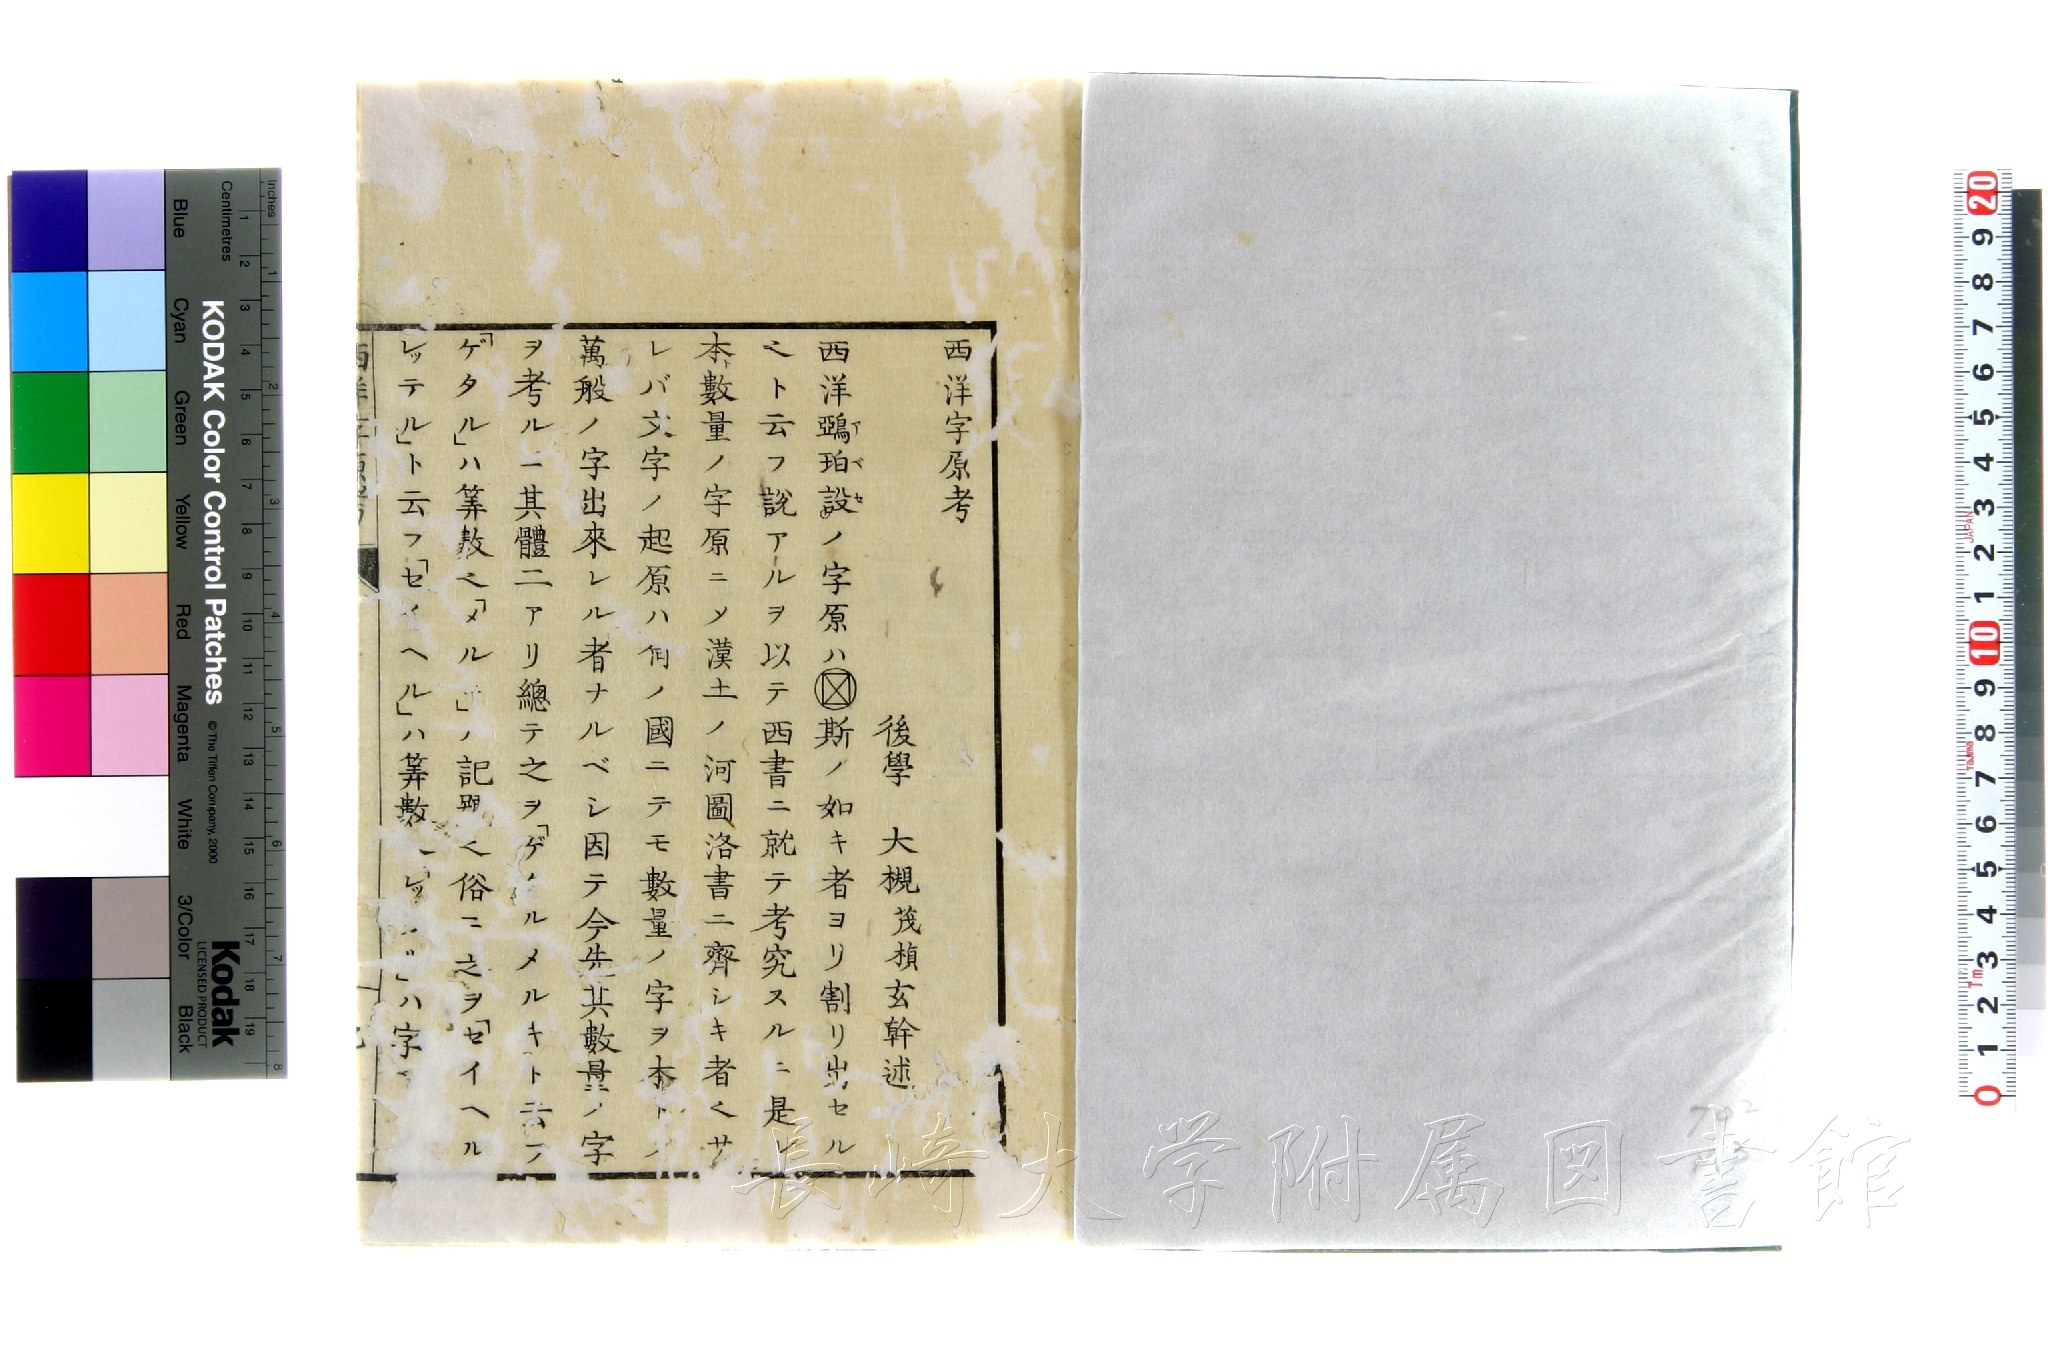 西洋字原考
後學 大槻茂楨玄幹述
西洋鵶珀設ノ字原ハ斯ノ如キ者ヨリ割リ出セル
アベセ
ヘト云フ説アルヲ以テ西書ニ就テ考究スルニ是レ
本數量ノ字原ニメ漢土ノ河圖洛書ニ齊シキ者ヘサ
レバ文字ノ起原ハ何ノ國ニテモ數量ノ字ヲ本トノ
萬般ノ字出來レル者ナルベシ因テ今先其數量ノ字
ヲ考ルニ其體二アリ總テ之ヲ「ゲルメルキト云フ
「ゲタル」ハ筭數ヘ「メル」ノ記ヘ俗ニ之ヲ「セイヘル
レッテル」ト云フ「セイヘル」ハ筭數ハ字
西洋字原考
長崎大学附属図書館
Inches
Centimetres
1 2 3 4 5 6 7 8 9 10 11 12 13 14 15 16 17 18 19
1 2 3 4 5 6 7 8
KODAK Color Control Patches ©The Tiffen Company, 2000
Kodak
LICENSED PRODUCT
Blue Cyan Green Yellow Red Magenta White 3/Color Black
20 9 8 7 6 5 4 3 2 1 10 9 8 7 6 5 4 3 2 1 0
JAPAN
Tajima
Tm